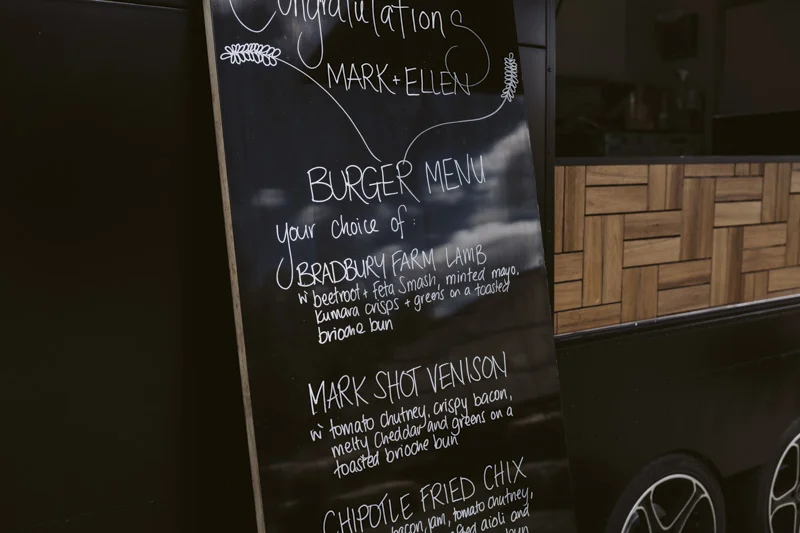 Congratulations
MARK + ELLEN
BURGER MENU
your choice of:
BRADBURY FARM LAMB
w beetroot + feta smash, minted mayo,
kumara crisps + greens on a toasted
brioche bun
MARK SHOT VENISON
w tomato chutney, crispy bacon,
melty Cheddar and greens on a
toasted brioche bun
CHIPOTLE FRIED CHIX
bacon jam, tomato chutney,
aioli and
bun